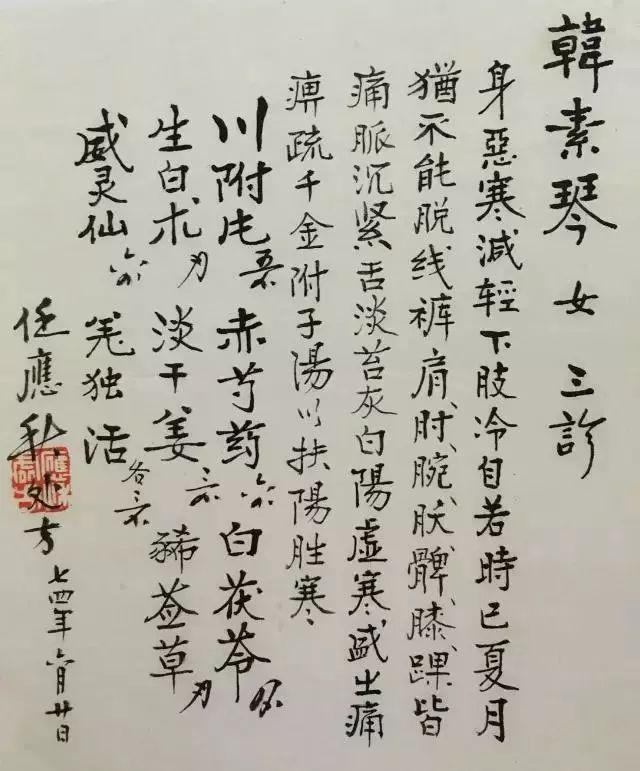 韓素琴 女 三診
身惡寒減輕下肢冷自若時已夏月
猶不能脱线裤肩、肘、腕、肷、髀、膝、踝皆
痛脈沉紧舌淡苔灰白陽虚寒盛之痛
痹疏千金附子湯以扶陽胜寒
川附片 赤芍药 白茯苓
生白术 淡干姜 豨莶草
威灵仙 羌独活 各
任應秋处方 七四年六月廿日